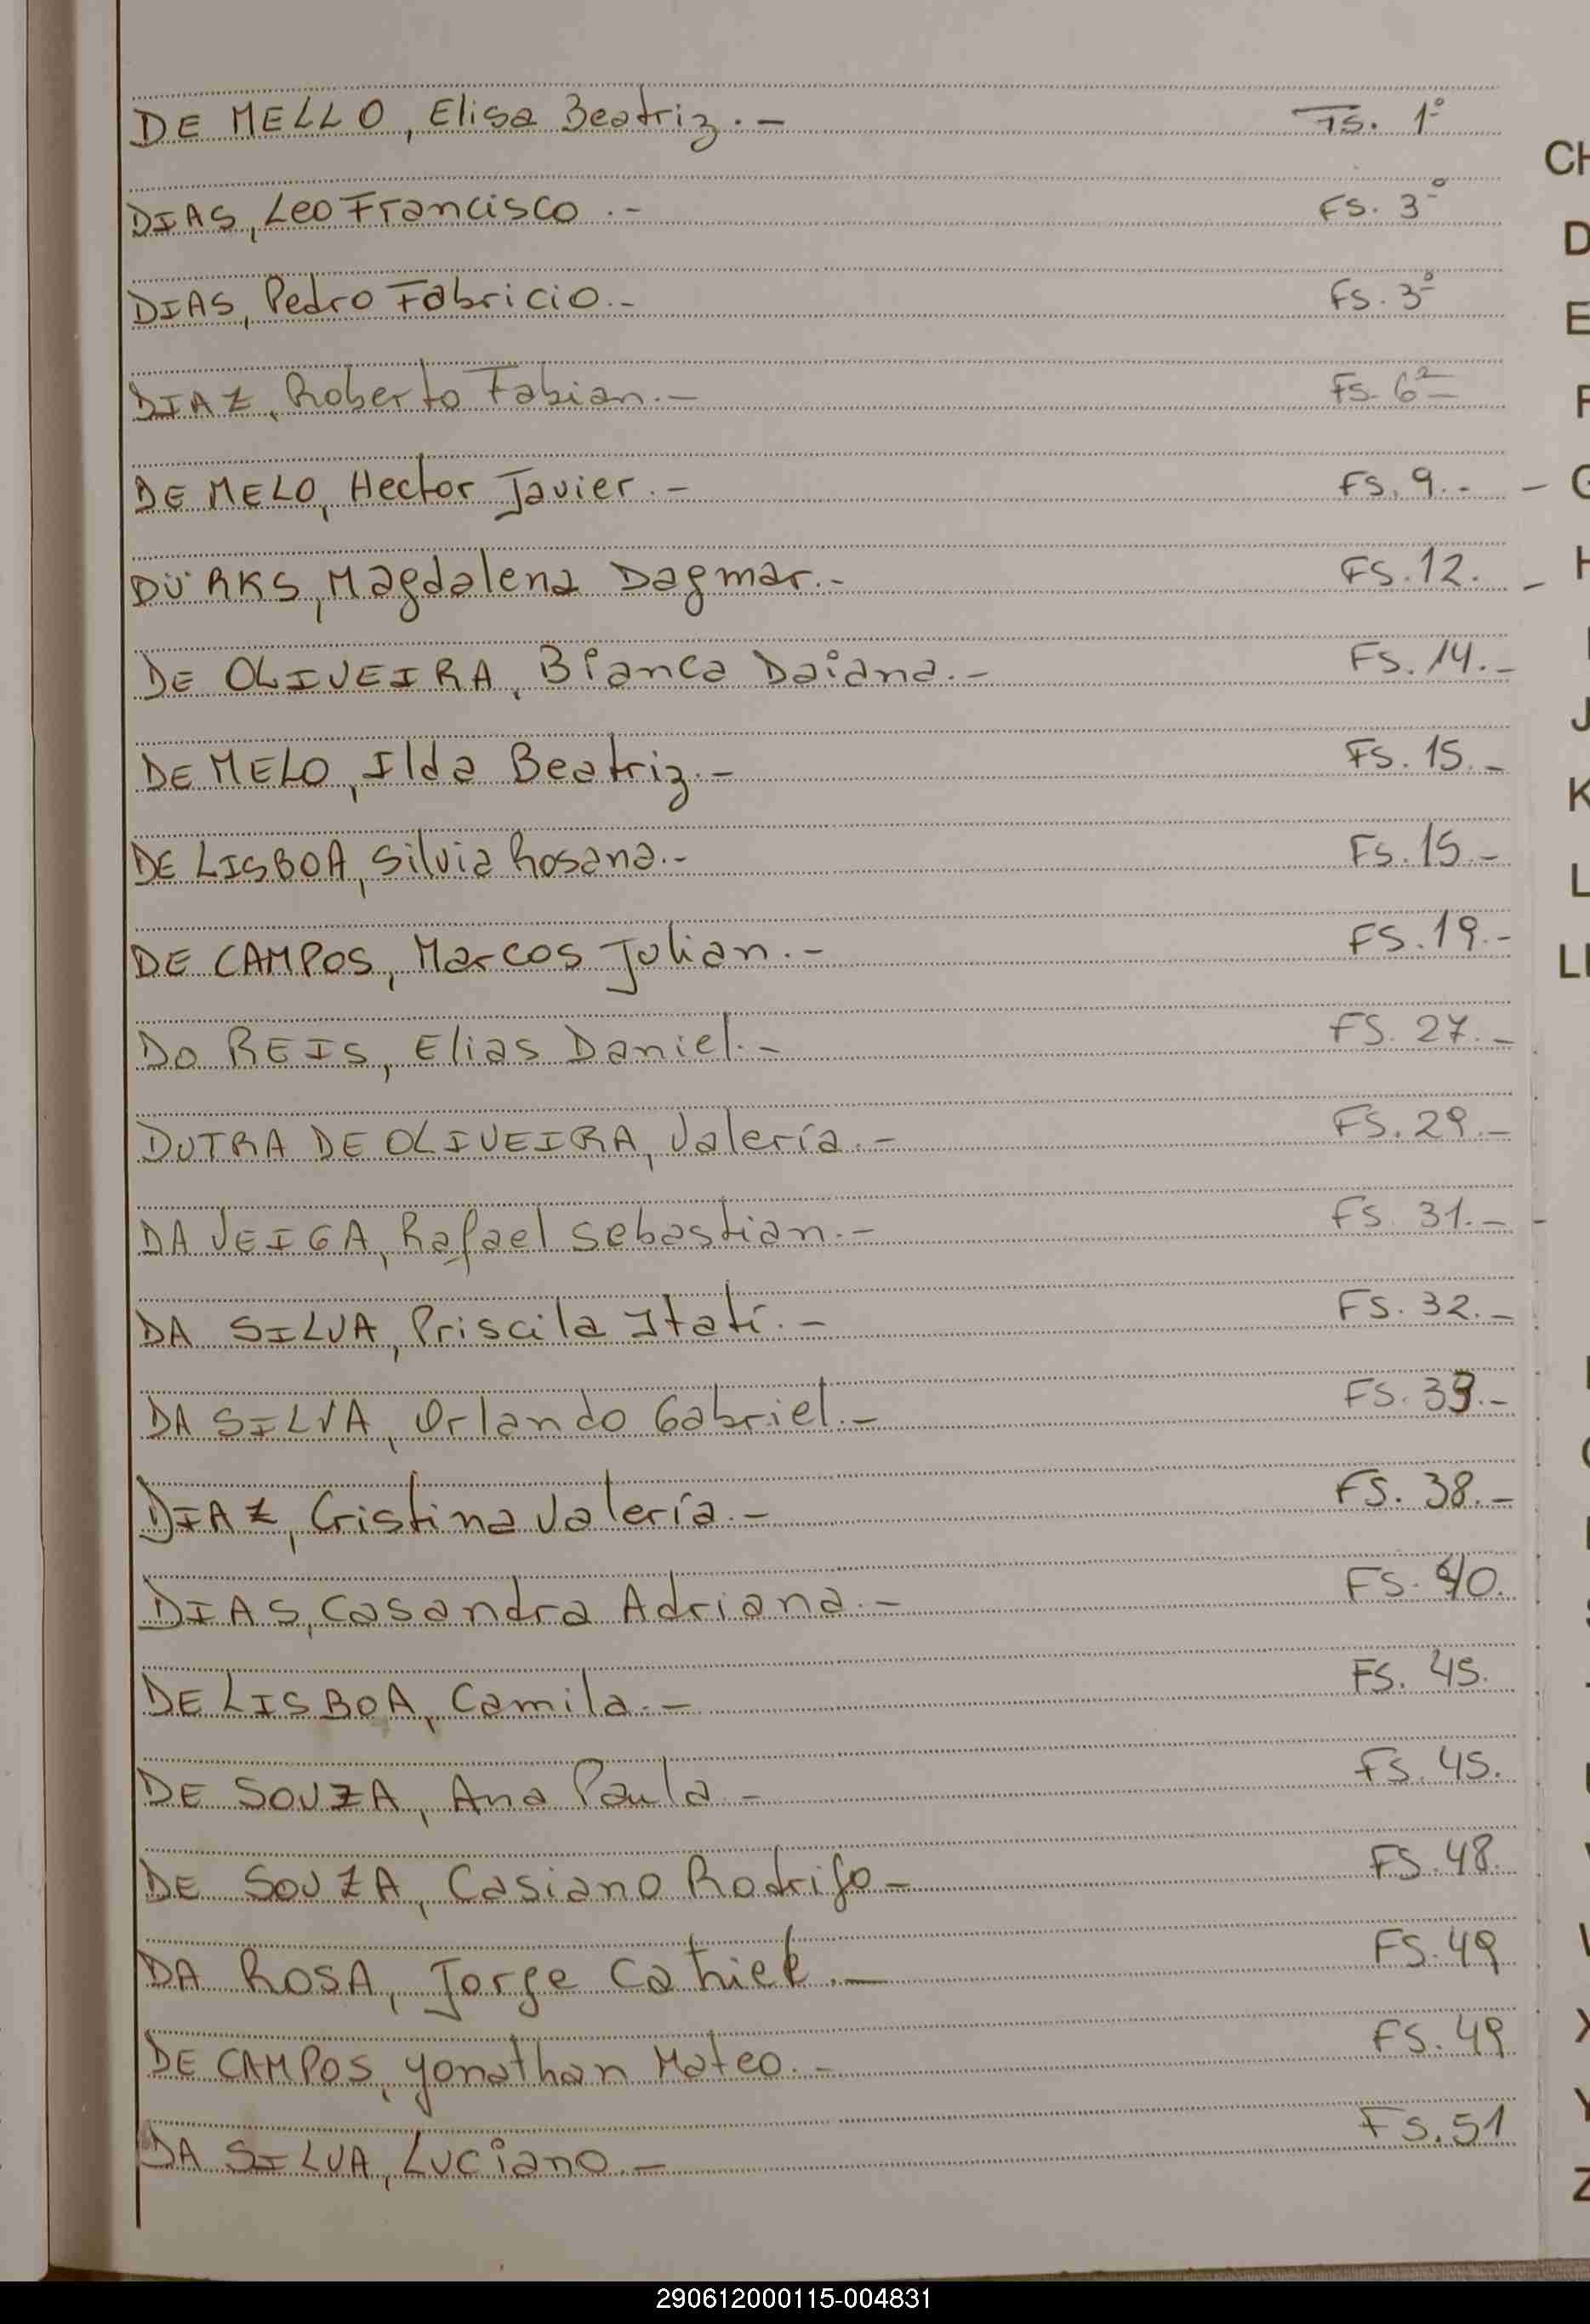 DE MELLO, Elisa Beatriz.- Fs. 1º
DIAS, Leo Francisco.- Fs. 3º
DIAS, Pedro Fabricio.- Fs. 3º
DIAZ, Roberto Fabian.- Fs. 6
DE MELO, Hector Javier.- Fs. 9.- -
DÜRKS, Magdalena Dagmar.- Fs. 12. -
DE OLIVEIRA, Bianca Daiana.- Fs. 14.-
DE MELO, Ilda Beatriz.- Fs. 15.-
DE LISBOA, Silvia Rosana.- Fs. 15.-
DE CAMPOS, Marcos Julian.- FS. 19.-
Do REIS, Elias Daniel.- FS. 27.-
DUTRA DE OLIVEIRA, Valería.- FS. 29.-
DA VEIGA, Rafael Sebastian.- FS. 31.- -
DA SILVA, Priscila Itatí.- FS. 32.-
DA SILVA, Orlando Gabriel.- FS. 33.-
DIAZ, Cristina Valería.- FS. 38.-
DIAS, Casandra Adriana.- FS. 40.
DE LISBOA, Camila.- FS. 45.
DE SOUZA, Ana Paula.- FS. 45.
DE SOUZA, Casiano Rodrigo- FS. 48.
DA ROSA, Jorge FS. 49
DE CAMPOS, Yonathan Mateo.- FS. 49
DA SILVA, Luciano.- FS. 51
CH
D
E
F
G
H
J
K
L
LL
X
Y
Z
290612000115-004831